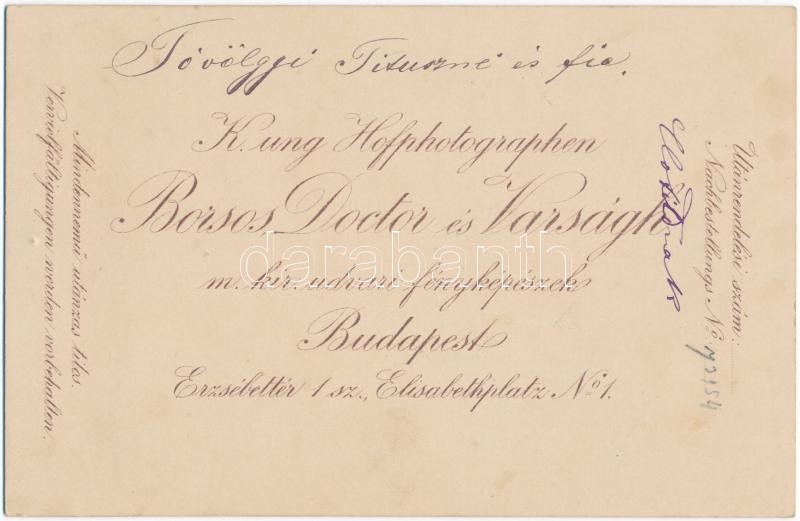 Tóvölgyi Tituszné és fia.
K. ung Hofphotographen
Borsos, Doctor és Varságh
m. kir. udvari fényképészek
Budapest
Erzsébettér 1 sz., Elisabethplatz No 1.
Mindennemű utánzás tilos.
Vervielfältigungen werden vorbehalten.
Utánrendelési szám:
Nachbestellungs No.
darabanth